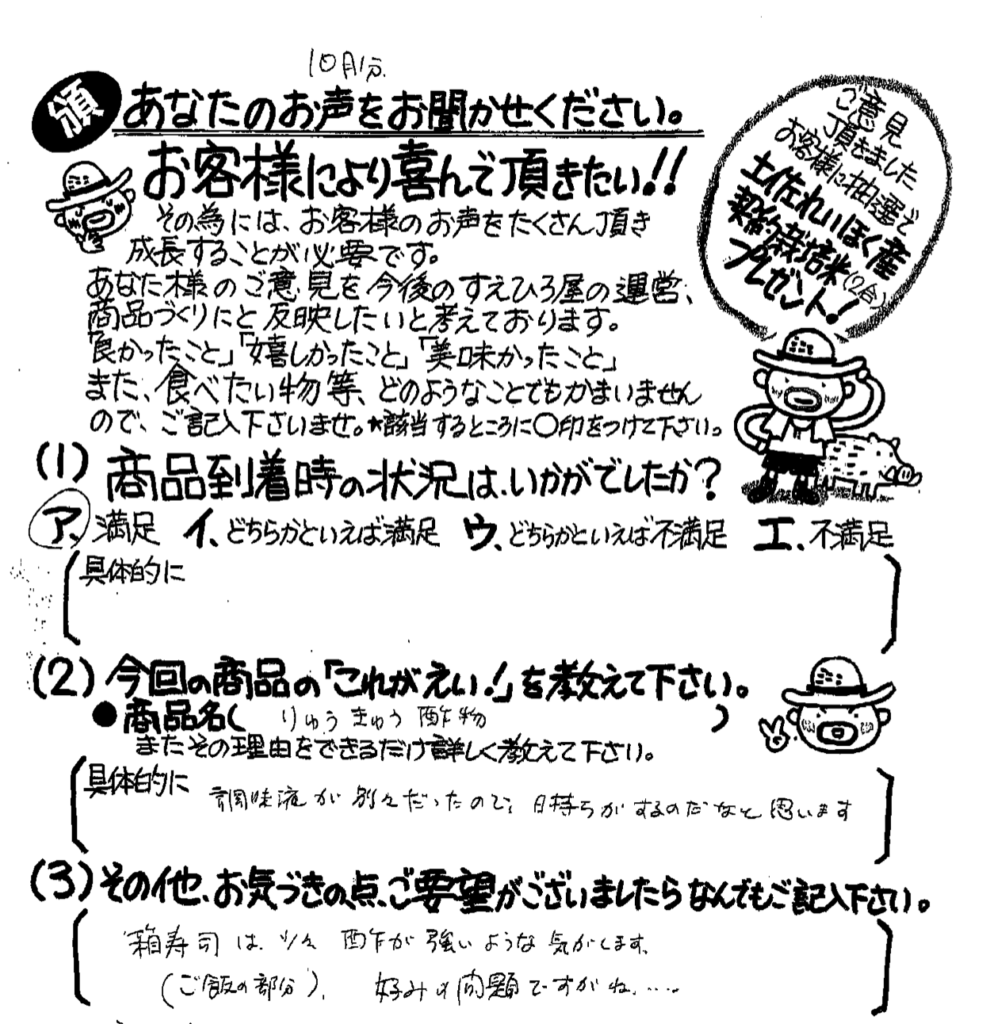 10月分
頒 あなたのお声をお聞かせください。
お客様により喜んで頂きたい!!
その為には、お客様のお声をたくさん頂き
成長することが必要です。
あなた様のご意見を今後のすえひろ屋の運営、
商品づくりにと反映したいと考えております。
「良かったこと」「嬉しかったこと」「美味かったこと」
また、食べたい物等、どのようなことでもかまいません
ので、ご記入下さいませ。*該当するところに〇印をつけて下さい。
ご意見
頂きました
お客様に抽選で
土佐れいほく産
契約栽培米(2合)
プレゼント!
(1) 商品到着時の状況は、いかがでしたか?
ア、満足 イ、どちらかといえば満足 ウ、どちらかといえば不満足 エ、不満足
具体的に
(2) 今回の商品の「これがえい!」を教えて下さい。
●商品名( りゅうきゅう酢物 )
またその理由をできるだけ詳しく教えて下さい。
具体的に 調味液が別々だったので、日持ちがするのだなと思います
(3) その他、お気づきの点、ご要望がございましたらなんでもご記入下さい。
箱寿司は、少々酢が強いような気がします、
(ご飯の部分)、好みの問題ですがね、……。